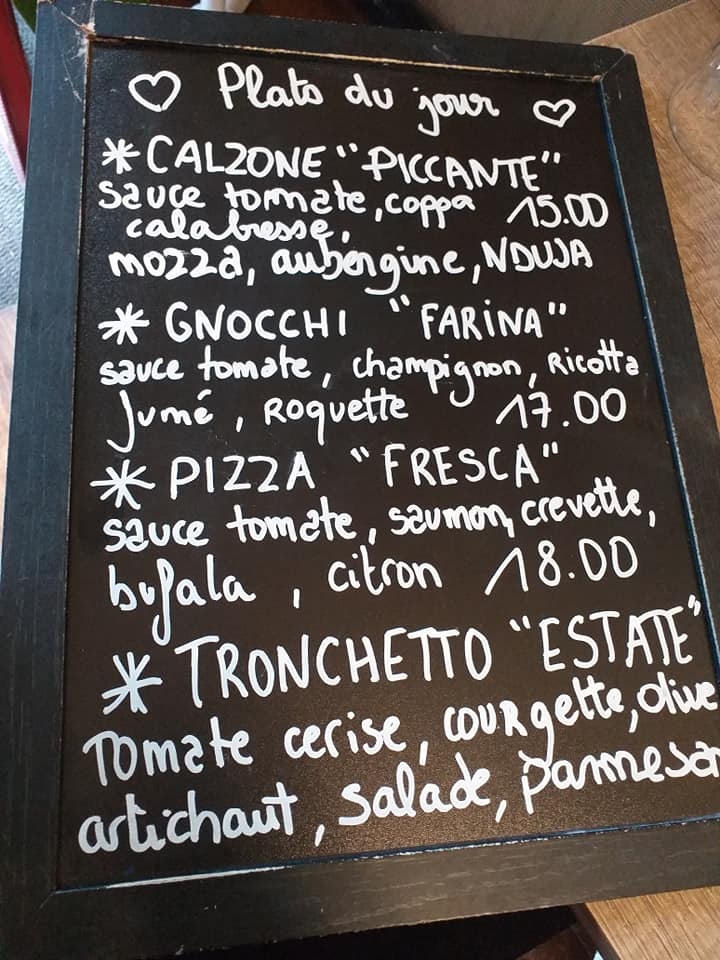 ♡ Plats du jour ♡
* CALZONE "PICCANTE"
sauce tomate, coppa 15.00
calabresse,
mozza, aubergine, NDUJA
* GNOCCHI "FARINA"
sauce tomate, champignon, Ricotta
fumé, Roquette 17.00
* PIZZA "FRESCA"
sauce tomate, saumon, crevette,
bufala, citron 18.00
* TRONCHETTO "ESTATE"
Tomate cerise, courgette, olive
artichaut, salade, parmesan